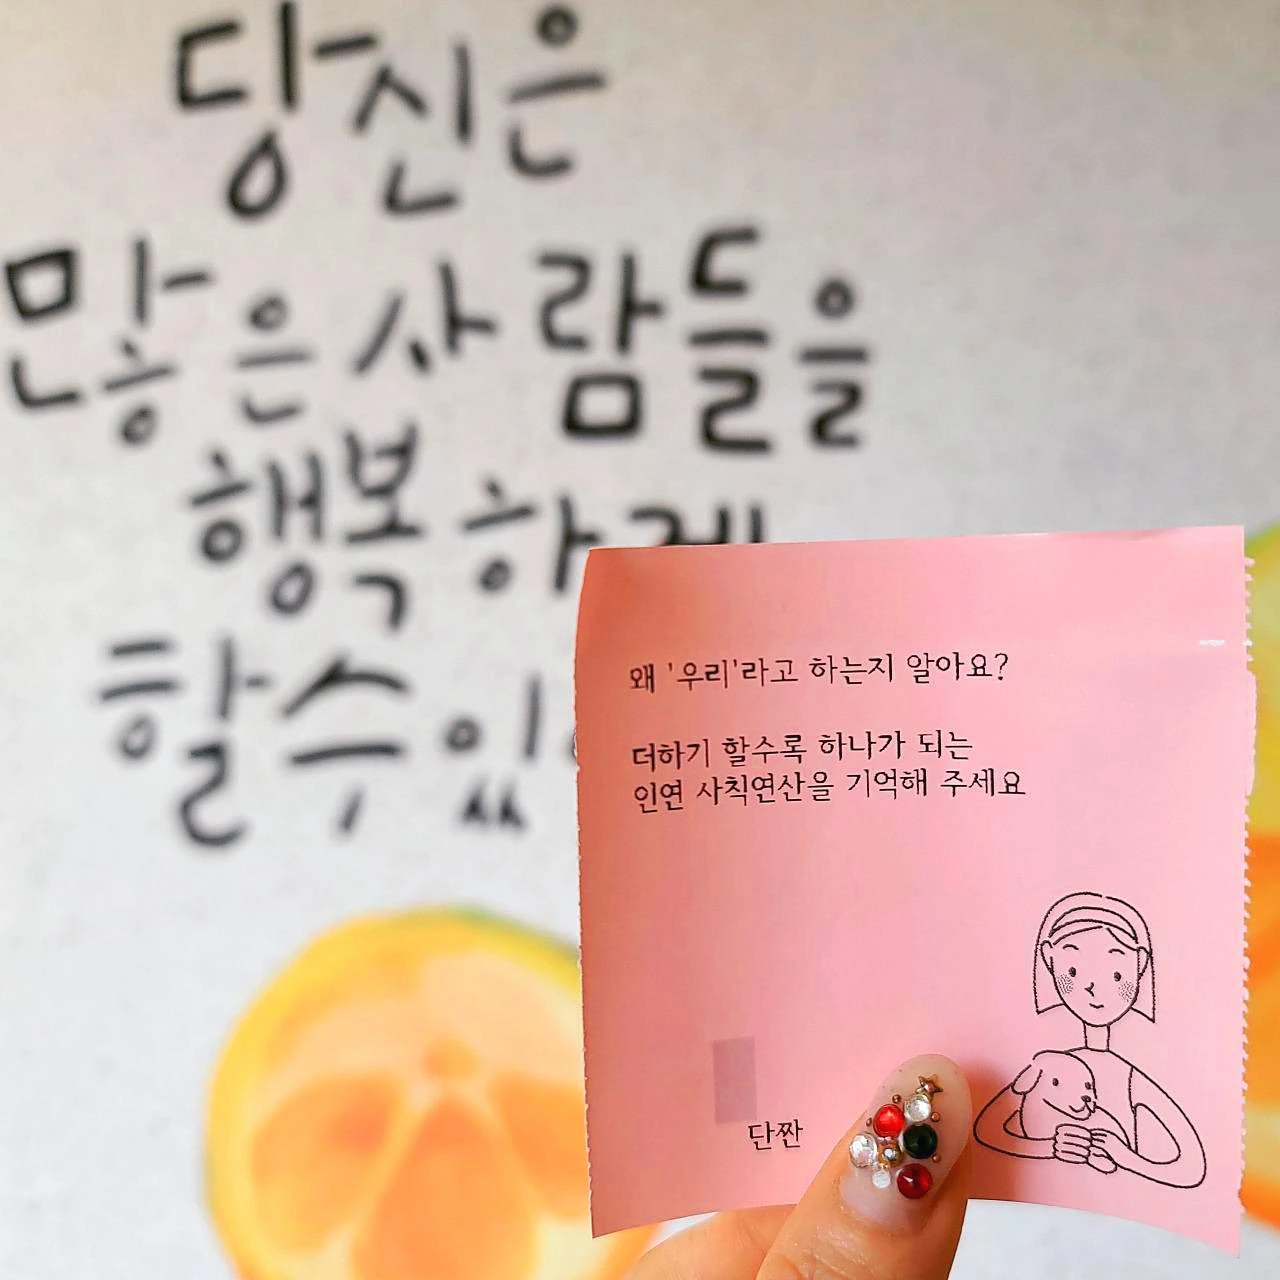 당신은
많은 사람들을
행복하게
할수있
왜 '우리'라고 하는지 알아요?
더하기 할수록 하나가 되는
인연 사칙연산을 기억해 주세요
단짠